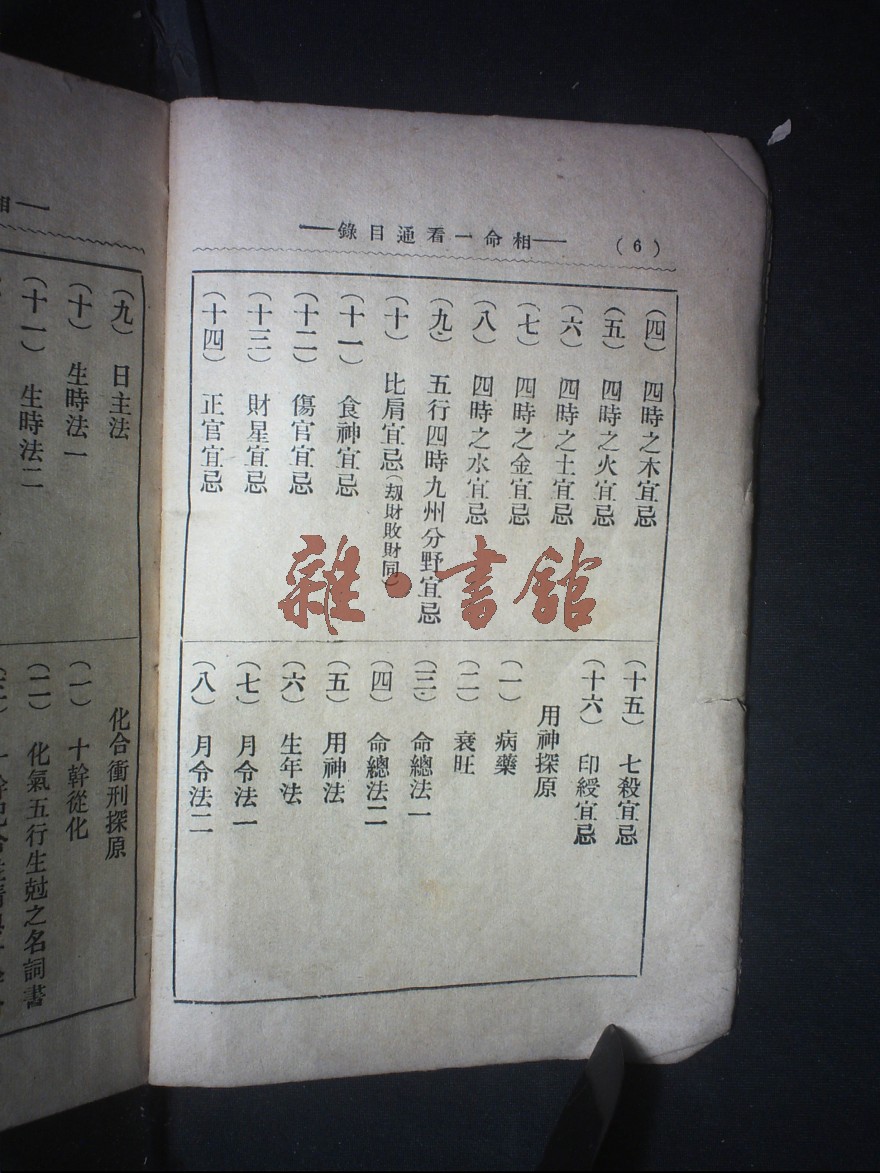 (6)
相命一看通目錄
(四) 四時之木宜忌
(五) 四時之火宜忌
(六) 四時之土宜忌
(七) 四時之金宜忌
(八) 四時之水宜忌
(九) 五行四時九州分野宜忌
(十) 比肩宜忌(刼財敗財同)
(十一) 食神宜忌
(十二) 傷官宜忌
(十三) 財星宜忌
(十四) 正官宜忌
(十五) 七殺宜忌
(十六) 印綬宜忌
用神探原
(一) 病藥
(二) 衰旺
(三) 命總法一
(四) 命總法二
(五) 用神法
(六) 生年法
(七) 月令法一
(八) 月令法二
相
(九) 日主法
(十) 生時法一
(十一) 生時法二
化合衝刑探原
(一) 十幹從化
(二) 化氣五行生尅之名詞書
雜·書館